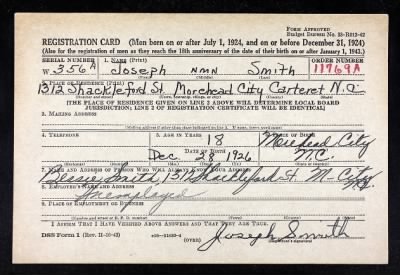 FORM APPROVED
Budget Bureau No. 33-R012-42
REGISTRATION CARD—(Men born on or after July 1, 1924, and on or before December 31, 1924)
(Also for the registration of men as they reach the 18th anniversary of the date of their birth on or after January 1, 1943.)
SERIAL NUMBER
1. NAME (Print)
ORDER NUMBER
W 356 A
Joseph NMN Smith
11969A
(First) (Middle) (Last)
2. PLACE OF RESIDENCE (Print)
1312 Shackleford St. Morehead City Carteret N.C.
(Number and street) (Town, township, village, or city) (County) (State)
[THE PLACE OF RESIDENCE GIVEN ON LINE 2 ABOVE WILL DETERMINE LOCAL BOARD
JURISDICTION; LINE 2 OF REGISTRATION CERTIFICATE WILL BE IDENTICAL]
3. MAILING ADDRESS
4. TELEPHONE
5. AGE IN YEARS
6. PLACE OF BIRTH
18
Morehead City
DATE OF BIRTH
Dec 28 1926
N.C.
7. NAME AND ADDRESS OF PERSON WHO WILL ALWAYS KNOW YOUR ADDRESS
Smith, 1312 Shackleford St. M-City
8. EMPLOYER'S NAME AND ADDRESS
Unemployed
9. PLACE OF EMPLOYMENT OR BUSINESS
I AFFIRM THAT I HAVE VERIFIED ABOVE ANSWERS AND THAT THEY ARE TRUE.
DSS Form 1 (Rev. 11-16-42)
(OVER)
Joseph Smith
(Registrant's signature)